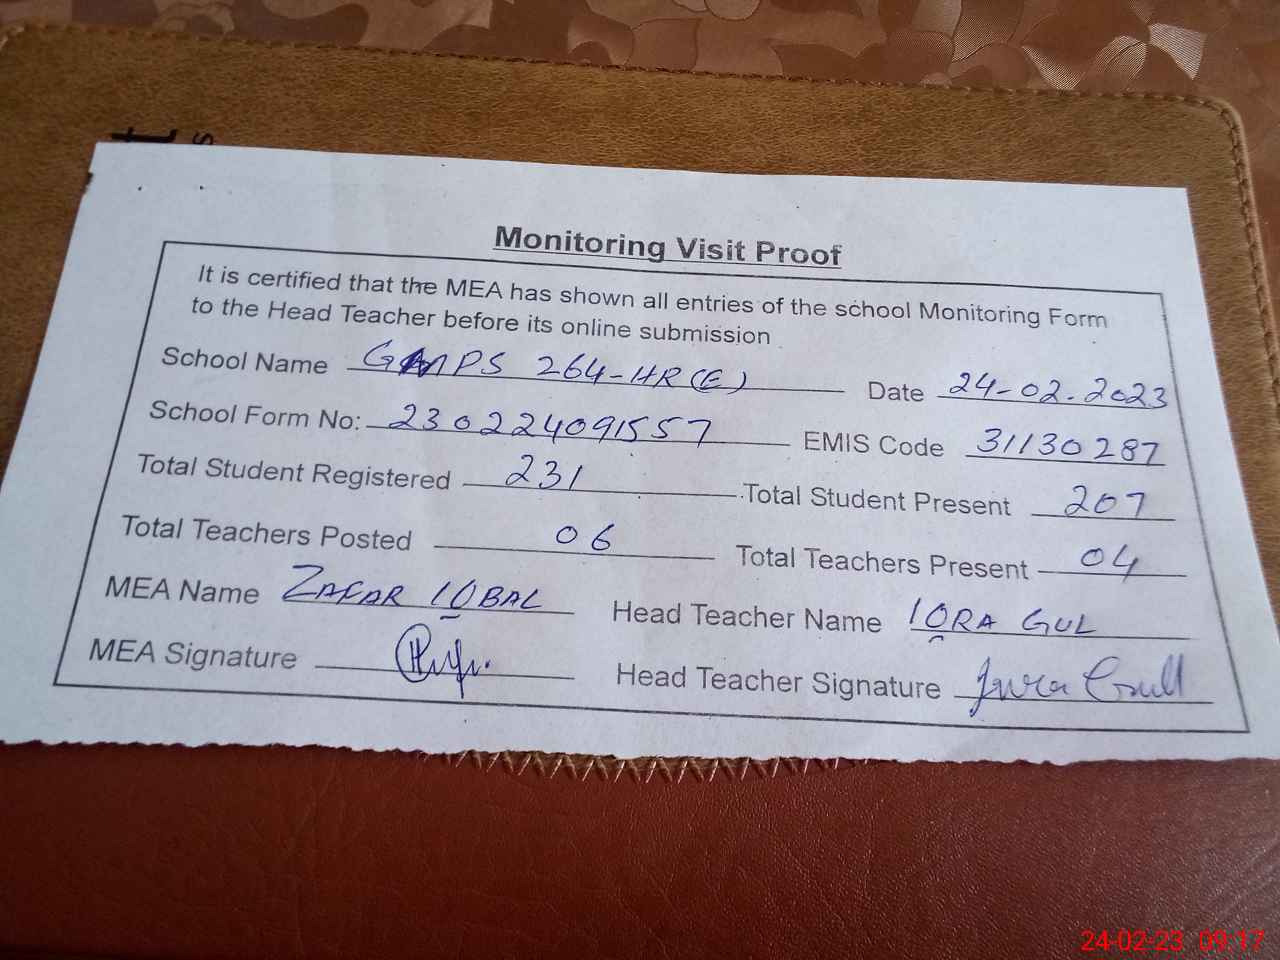 t
s
Monitoring Visit Proof
It is certified that the MEA has shown all entries of the school Monitoring Form
to the Head Teacher before its online submission
School Name GMPS 264-HR(E) Date 24-02-2023
School Form No: 230224091557 EMIS Code 31130287
Total Student Registered 231 Total Student Present 207
Total Teachers Posted 06 Total Teachers Present 04
MEA Name ZAFAR IQBAL Head Teacher Name IQRA GUL
MEA Signature Head Teacher Signature Iqra Gull
24-02-23 09:17